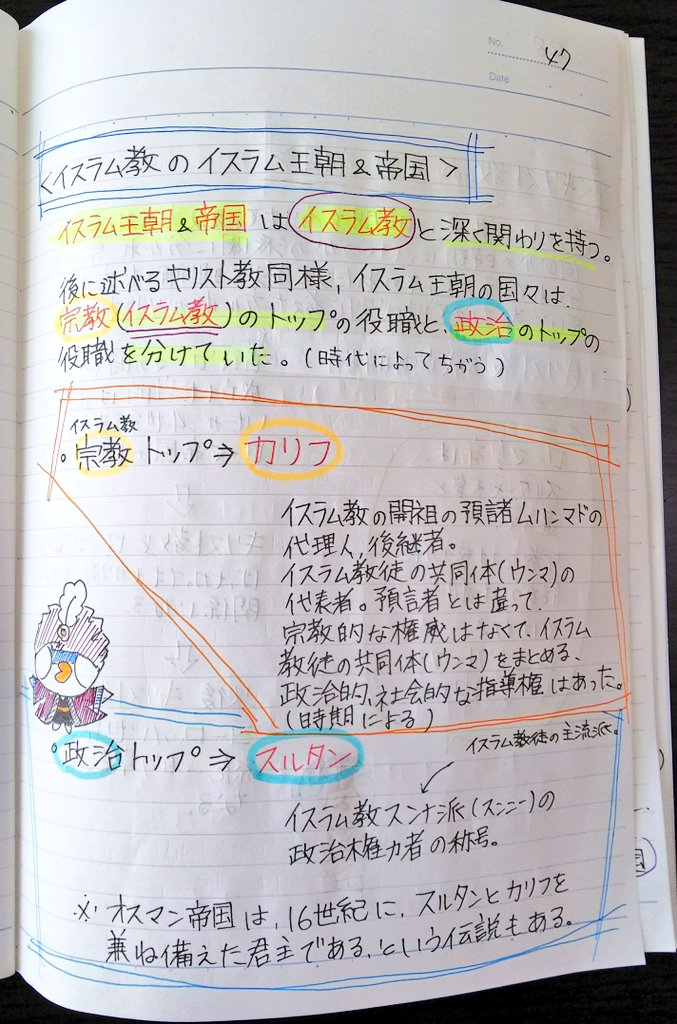 No.
47
Date
<イスラム教のイスラム王朝&帝国>
イスラム王朝&帝国はイスラム教と深く関わりを持つ。
後に述べるキリスト教同様,イスラム王朝の国々は、
宗教(イスラム教)のトップの役職と、政治のトップの
役職を分けていた。(時代によってちがう)
イスラム教
・宗教トップ⇒カリフ
イスラム教の開祖の預諸ムハンマドの
代理人,後継者。
イスラム教徒の共同体(ウンマ)の
代表者。預言者とは違って、
宗教的な権威はなくて、イスラム
教徒の共同体(ウンマ)をまとめる、
政治的、社会的な指導権はあった。
(時期による)
・政治トップ⇒スルタン
イスラム教徒の主流派。
イスラム教スンナ派(スンニー)の
政治権力者の称号。
※オスマン帝国は,16世紀に,スルタンとカリフを
兼ね備えた君主である、という伝説もある。
国